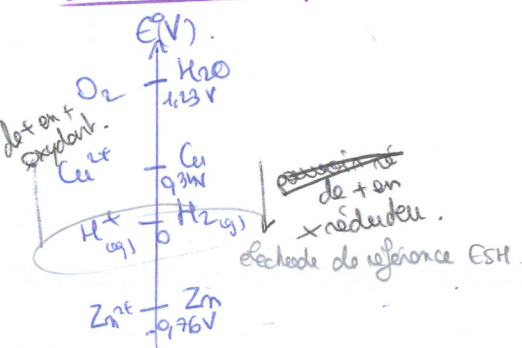 E°(V).
O₂ H₂O
1,23 V
de + en +
oxydant.
Cu²⁺ Cu
0,34V
de + en
+ réducteur.
H⁺(aq) H₂(g)
0
électrode de référence ESH.
Zn²⁺ Zn
-0,76V